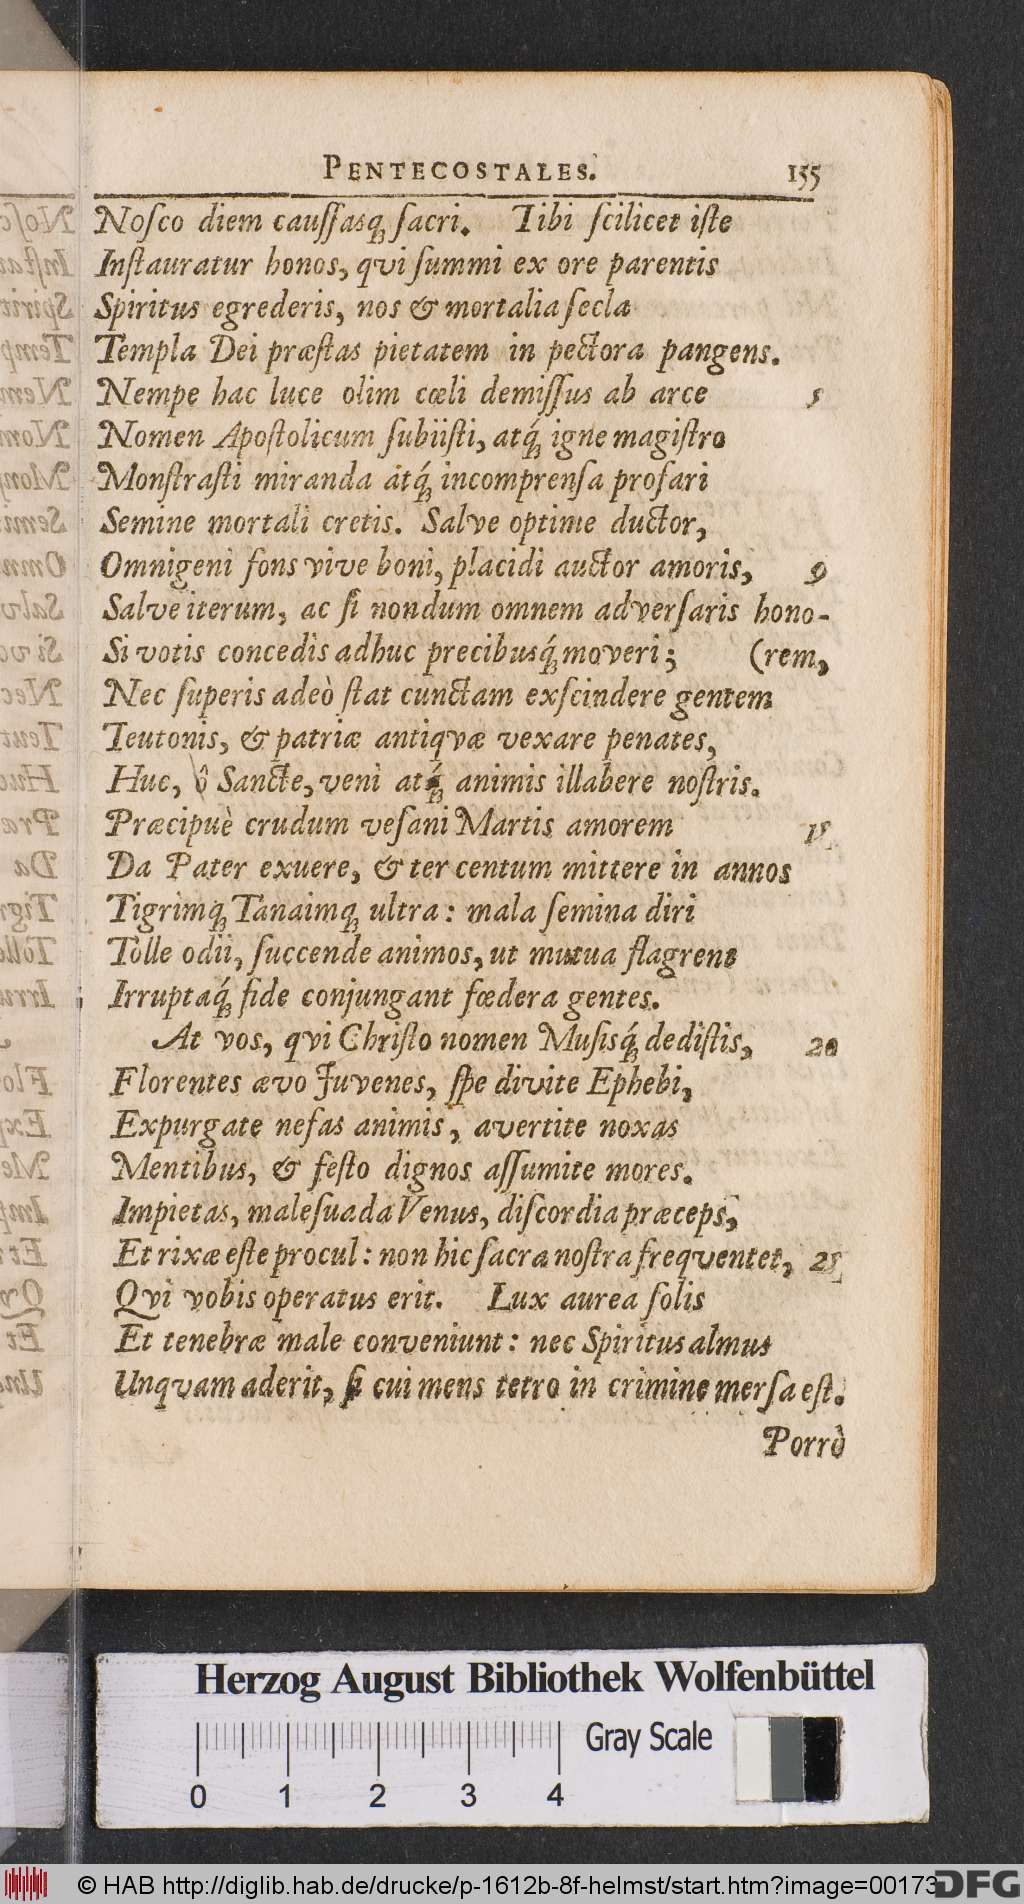 PENTECOSTALES. 155
Noſco diem cauſſasq́; ſacri. Tibi ſcilicet iſte
Inſtauratur honos, qvi ſummi ex ore parentis
Spiritus egrederis, nos & mortalia ſecla
Templa Dei præſtas pietatem in pectora pangens.
Nempe hac luce olim cœli demiſſus ab arce 5
Nomen Apoſtolicum ſubiiſti, atq́; igne magiſtro
Monſtraſti miranda atq́; incomprenſa profari
Semine mortali cretis. Salve optime ductor,
Omnigeni fons vive boni, placidi auctor amoris, 9
Salve iterum, ac ſi nondum omnem adverſaris hono-
Si votis concedis adhuc precibusq́; moveri; (rem,
Nec ſuperis adeò ſtat cunctam exſcindere gentem
Teutonis, & patriæ antiqvæ vexare penates,
Huc, ô Sancte, veni atq́; animis illabere noſtris.
Præcipuè crudum veſani Martis amorem 15
Da Pater exuere, & ter centum mittere in annos
Tigrimq; Tanaimq; ultra: mala ſemina diri
Tolle odii, ſuccende animos, ut mutua flagrent
Irruptaq́; fide conjungant fœdera gentes.
At vos, qvi Chriſto nomen Muſisq́; dediſtis, 20
Florentes ævo Juvenes, ſpe divite Ephebi,
Expurgate nefas animis, avertite noxas
Mentibus, & feſto dignos aſſumite mores.
Impietas, maleſuada Venus, diſcordia præceps,
Et rixæ eſte procul: non hic ſacra noſtra freqventet, 25
Qvi vobis operatus erit. Lux aurea ſolis
Et tenebræ male conveniunt: nec Spiritus almus
Unqvam aderit, ſi cui mens tetro in crimine merſa eſt.
Porrò
Herzog August Bibliothek Wolfenbüttel
Gray Scale
0 1 2 3 4
© HAB http://diglib.hab.de/drucke/p-1612b-8f-helmst/start.htm?image=00173
DFG